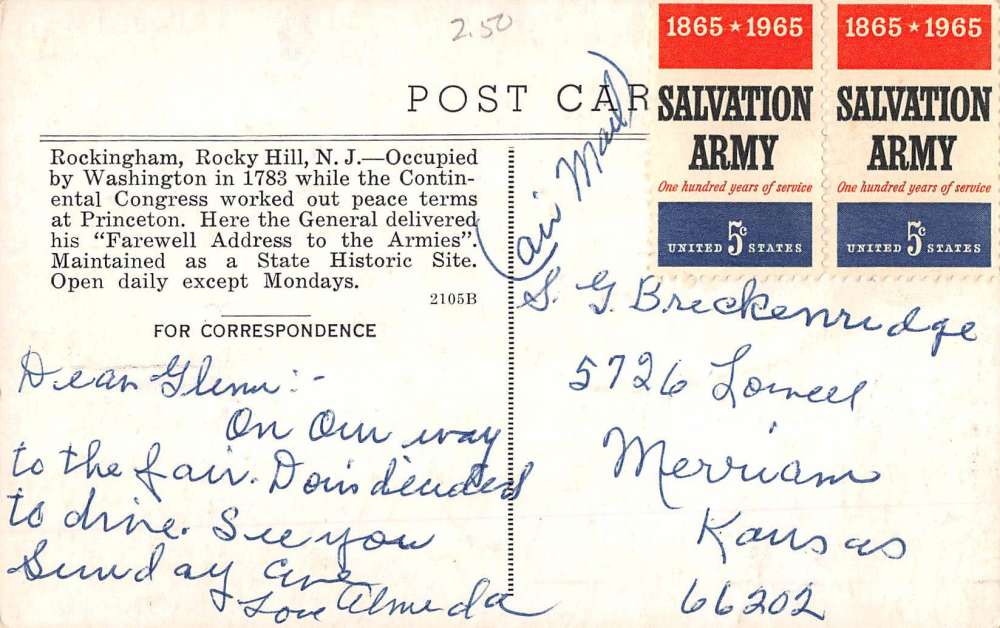 2.50
POST CAR
1865 ★ 1965
SALVATION
ARMY
One hundred years of service
UNITED 5c STATES
1865 ★ 1965
SALVATION
ARMY
One hundred years of service
UNITED 5c STATES
Rockingham, Rocky Hill, N. J.—Occupied
by Washington in 1783 while the Contin-
ental Congress worked out peace terms
at Princeton. Here the General delivered
his “Farewell Address to the Armies”.
Maintained as a State Historic Site.
Open daily except Mondays.
2105B
FOR CORRESPONDENCE
Dear Glenn:-
On Our way
to the fair. Doris decided
to drive. See you
Sunday eve
Love Almeda
(air Mail)
S. G. Breckenridge
5726 Lowell
Merriam
Kansas
66202